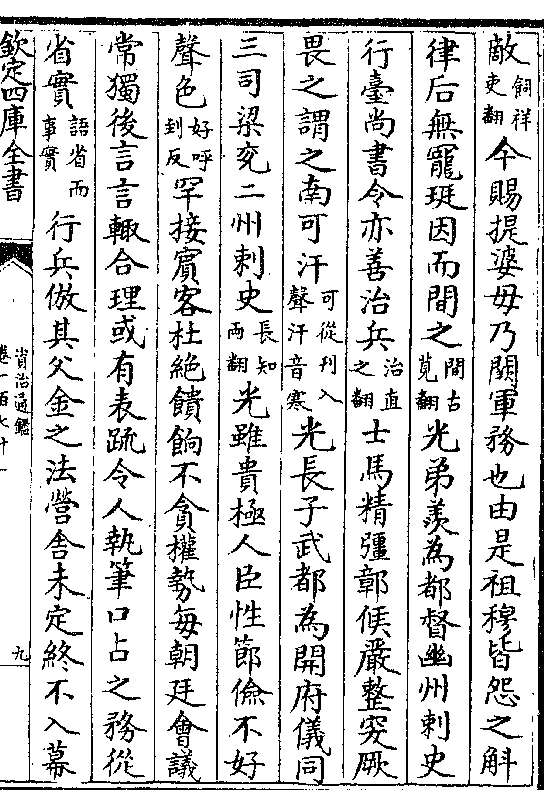 敵飼祥吏翻今賜提婆毋乃闕軍務也由是祖穆皆怨之斛
律后無寵珽因而間之間古莧翻光弟羨為都督幽州刺史
行臺尚書令亦善治兵治直之翻士馬精彊鄣候嚴整突厥
畏之謂之南可汗可從刋入聲汗音寒光長子武都為開府儀同
三司梁兗二州刺史長知兩翻光雖貴極人臣性節儉不好
聲色好呼到反罕接賔客杜絶饋餉不貪權勢每朝廷會議
常獨後言言輙合理或有表疏令人執筆口占之務從
省實語省而事實行兵倣其父金之法營舎未定終不入幕
欽定四庫全書
資治通鑑
卷一百七十一
九